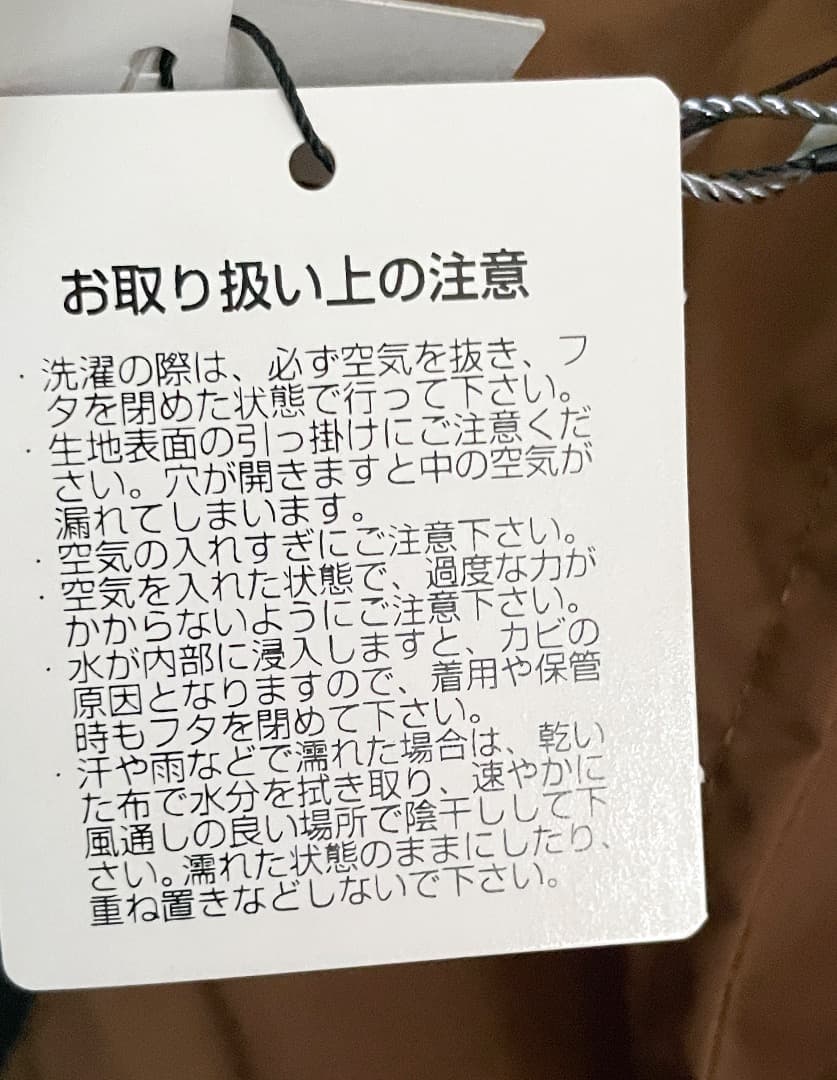 お取り扱い上の注意
・洗濯の際は、必ず空気を抜き、フ
タを閉めた状態で行って下さい。
・生地表面の引っ掛けにご注意くだ
さい。穴が開きますと中の空気が
漏れてしまいます。
・空気の入れすぎにご注意下さい。
・空気を入れた状態で、過度な力が
かからないようにご注意下さい。
・水が内部に浸入しますと、カビの
原因となりますので、着用や保管
時もフタを閉めて下さい。
・汗や雨などで濡れた場合は、乾い
た布で水分を拭き取り、速やかに
風通しの良い場所で陰干しして下
さい。濡れた状態のままにしたり、
重ね置きなどしないで下さい。